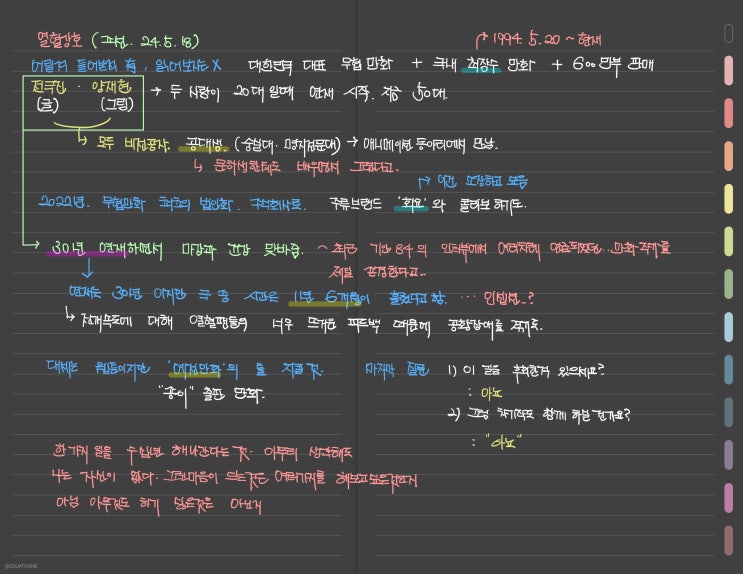 열혈강호 (그것은. 24. 5. 18)
↗ 1994. 5. 20 ~ 현재
어릴적 들어보기 有, 읽어보지는 X 대한민국 대표 무협 만화 + 국내 최장수 만화 + 600만부 판매
전극진 · 양재현 → 두 사람이 20대 일때 연재 시작. 지금 50대.
(글) (그림)
↳ 모두 비전공자. 공대생. (숭실대 · 명지전문대) → 애니메이션 동아리에서 만남.
↳ 문하생한테도 배우면서 그렸다고.
↱ 이건 소장하고 싶음
2022년. 무협만화 최초의 법인화. 주식회사로. 주류브랜드 '화요'와 콜라보 하기도.
30년 연재하면서 마감과 건강 맞바꿈. ~ 최근 기안84의 인터뷰에서 여러차례 언급되었던... 만화 작가를
제일 존경한다고..
연재는 30년 이지만 극 중 시간은 1년 6개월이 흘렀다고 함. … 인생이..?
↳ 전개속도에 대해 열혈팬들의 너무 뜨거운 피드백 때문에 공황장애를 작가로.
대세는 웹툰이지만 '예전만화'의 틀 지킬 것.
"종이" 출판 만화.
마지막 질문 1) 이 일을 후회한적 있으세요?
: 아뇨
2) 그럼 차기작도 함께 하실 건가요?
: "아뇨"
한 가지 일을 수십년 해 나간다는 것. 아무리 생각해도
나는 자신이 없다. 그런마음이 드는것은 여러가지를 해보고싶은걸런지
아님 아무것도 하기 싫은것은 아닌지
@EDUATHOME